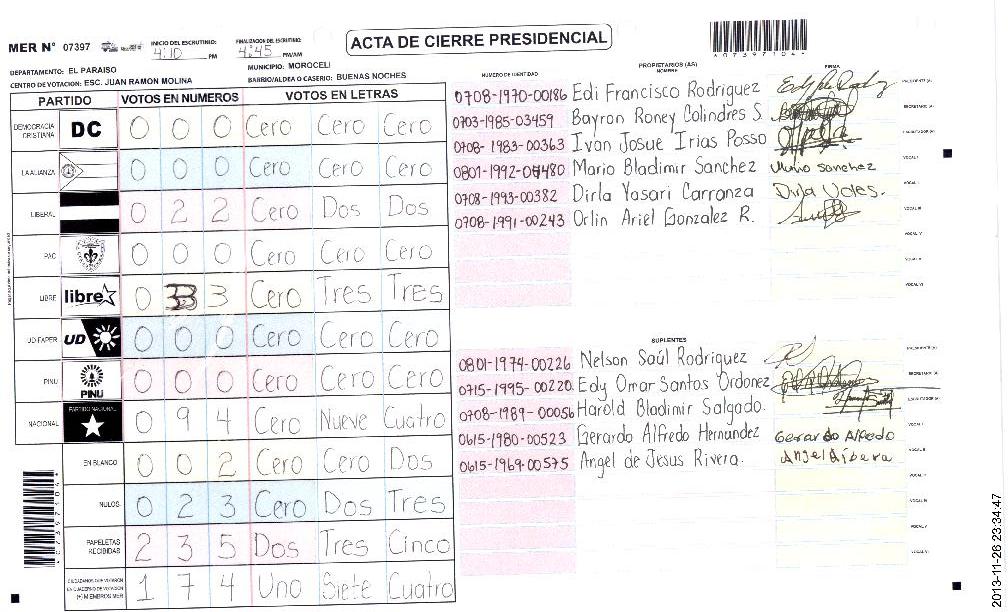 MER N° 07397
INICIO DEL ESCRUTINIO: 4:10 PM
FINALIZACION DEL ESCRUTINIO: 4:45 PM/AM
ACTA DE CIERRE PRESIDENCIAL
DEPARTAMENTO: EL PARAISO
MUNICIPIO: MOROCELI
CENTRO DE VOTACION: ESC. JUAN RAMON MOLINA
BARRIO/ALDEA O CASERIO: BUENAS NOCHES
PARTIDO VOTOS EN NUMEROS VOTOS EN LETRAS
DEMOCRACIA CRISTIANA DC 0 0 0 Cero Cero Cero
LA ALIANZA 0 0 0 Cero Cero Cero
LIBERAL 0 2 2 Cero Dos Dos
PAC 0 0 0 Cero Cero Cero
LIBRE libre 0 3 3 Cero Tres Tres
UD FAPER UD 0 0 0 Cero Cero Cero
PINU PINU 0 0 0 Cero Cero Cero
NACIONAL PARTIDO NACIONAL 0 9 4 Cero Nueve Cuatro
EN BLANCO 0 0 2 Cero Cero Dos
NULOS 0 2 3 Cero Dos Tres
PAPELETAS RECIBIDAS 2 3 5 Dos Tres Cinco
CIUDADANOS QUE VOTARON EN CUADERNO DE VOTACION (+) MIEMBROS MER 1 7 4 Uno Siete Cuatro
PROPIETARIOS (AS)
NUMERO DE IDENTIDAD NOMBRE FIRMA
0708-1970-00186 Edi Francisco Rodriguez PRESIDENTE (A)
0703-1985-03459 Bayron Roney Colindres S. SECRETARIO (A)
0708-1983-00363 Ivan Josue Irias Posso ESCRUTADOR (A)
0801-1992-04480 Mario Bladimir Sanchez Mario Sanchez VOCAL I
0708-1993-00382 Dirla Yasari Carranza Dirla VOCAL II
0708-1991-00243 Orlin Ariel Gonzalez R. VOCAL III
VOCAL IV
VOCAL V
VOCAL VI
SUPLENTES
0801-1974-00226 Nelson Saúl Rodriguez PRESIDENTE (A)
0715-1995-00220 Edy Omar Santos Ordonez SECRETARIO (A)
0708-1989-00056 Harold Bladimir Salgado. ESCRUTADOR (A)
0615-1980-00523 Gerardo Alfredo Hernandez Gerardo Alfredo VOCAL I
0615-1969-00575 Angel de Jesus Rivera. Angel Ribera VOCAL II
VOCAL III
VOCAL IV
VOCAL V
VOCAL VI
2013-11-26 23:34:47